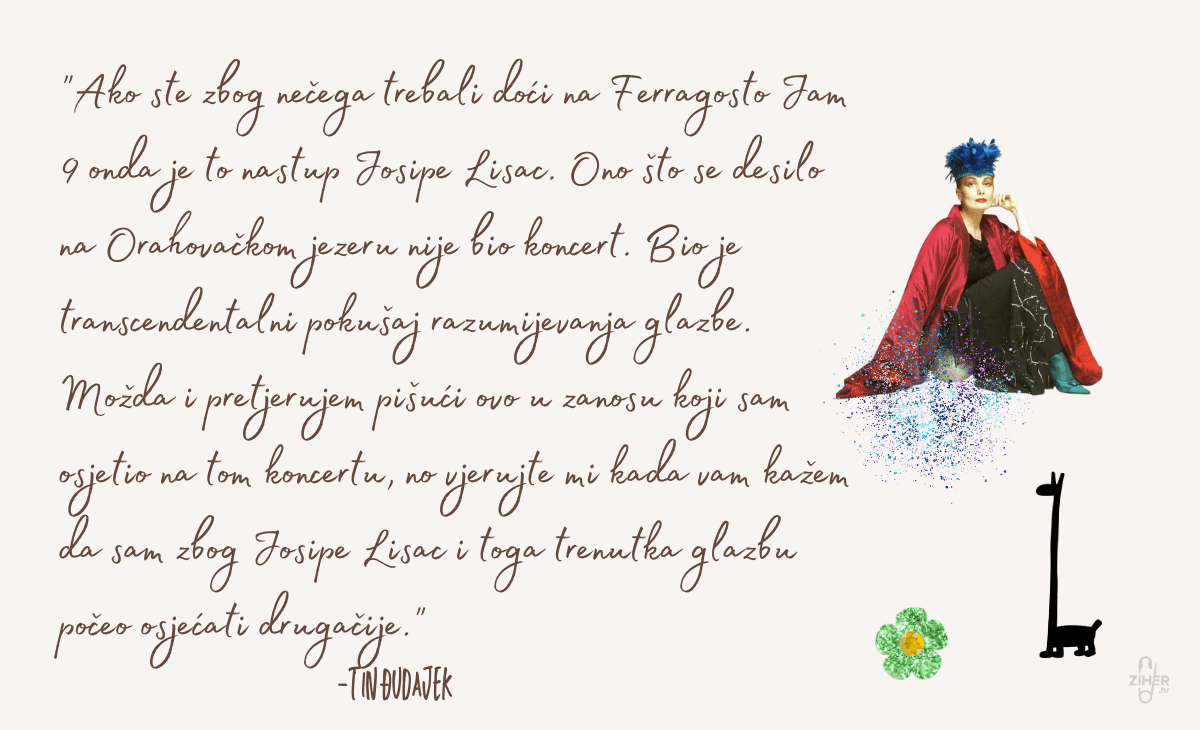 "Ako ste zbog nečega trebali doći na Ferragosto Jam
9 onda je to nastup Josipe Lisac. Ono što se desilo
na Orahovačkom jezeru nije bio koncert. Bio je
transcendentalni pokušaj razumijevanja glazbe.
Možda i pretjerujem pišući ovo u zanosu koji sam
osjetio na tom koncertu, no vjerujte mi kada vam kažem
da sam zbog Josipe Lisac i toga trenutka glazbu
počeo osjećati drugačije."
-TIN ĐUDAJEK
ZIHER
.hr